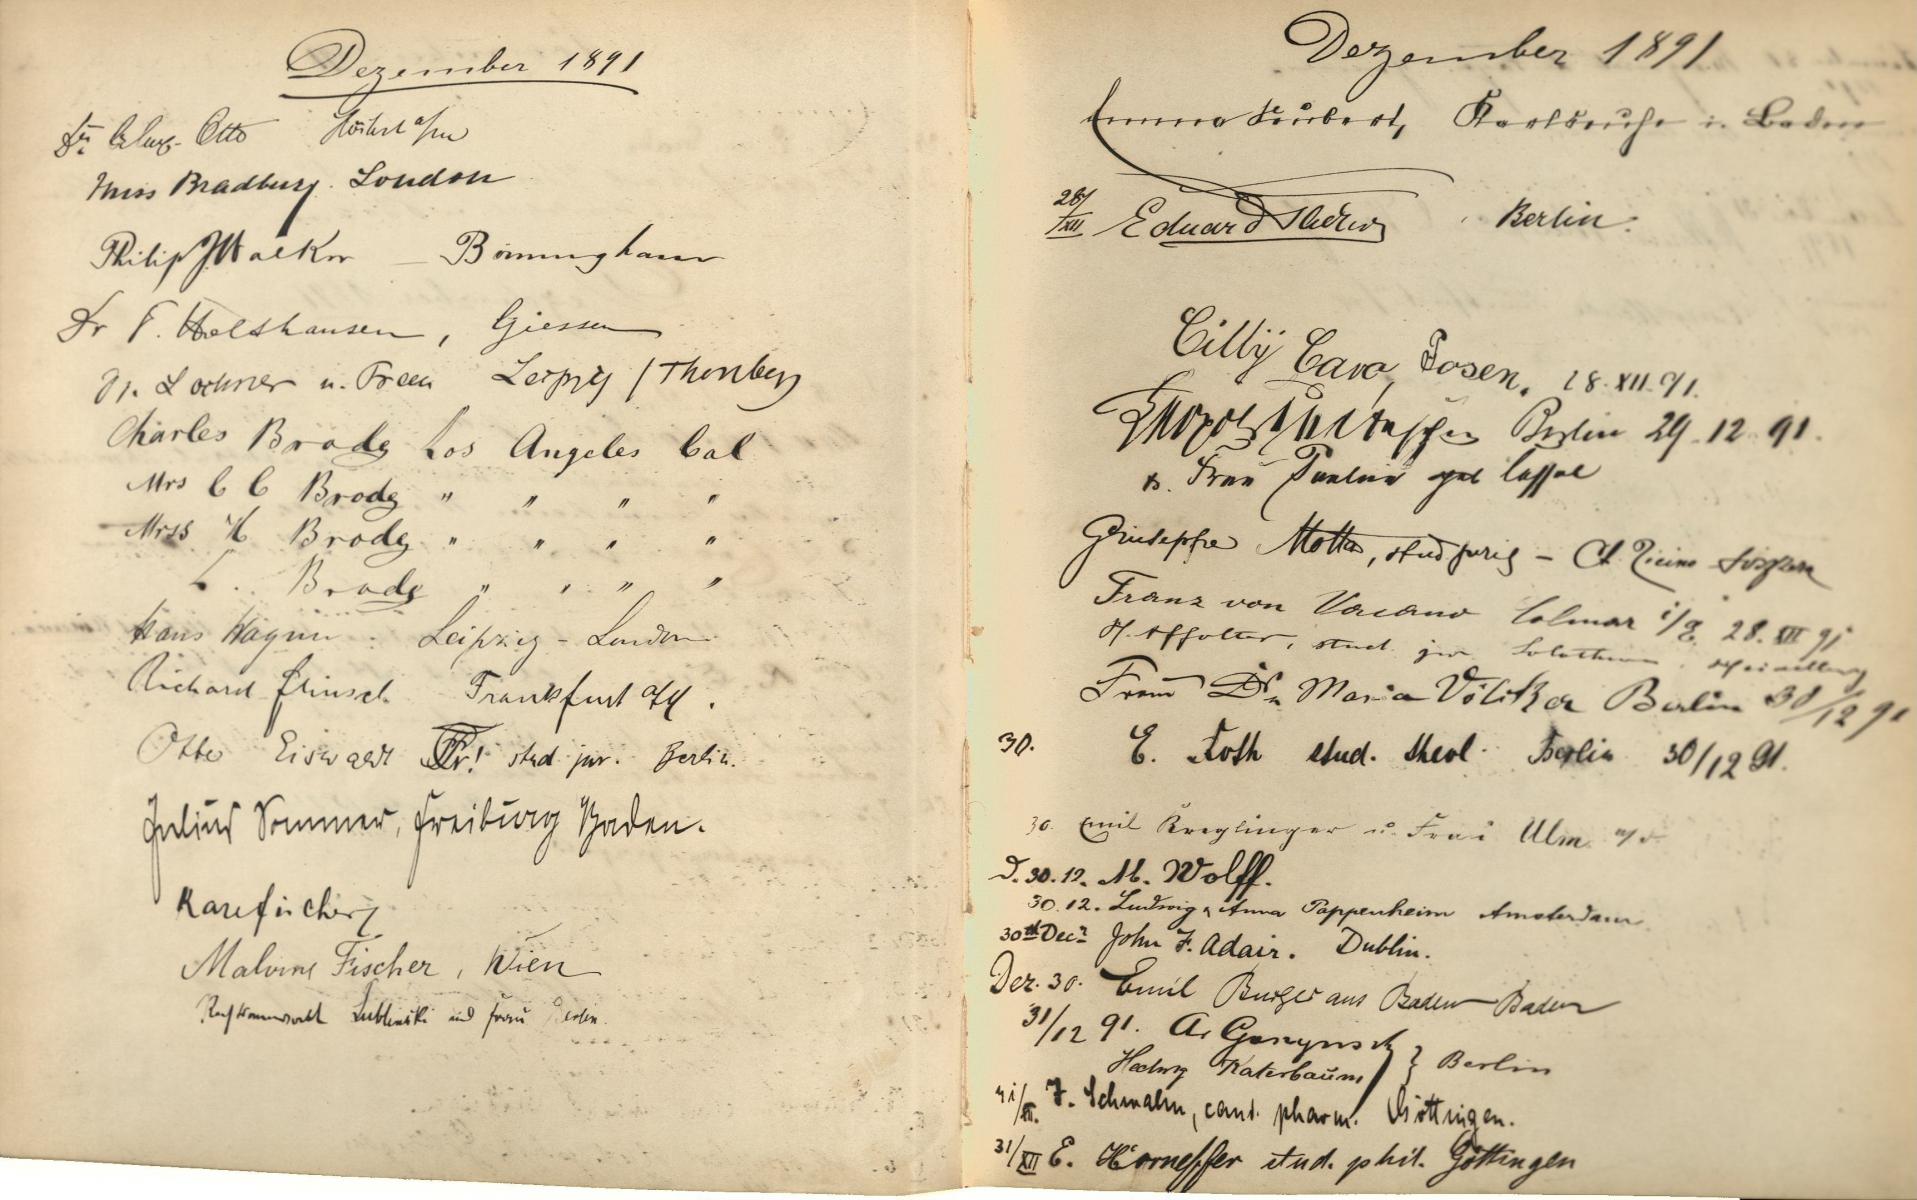 Dezember 1891
Otto
Miss Bradbury. London
Philip J Walker — Birmingham
Dr F. Holshausen, Giessen
Lochner u. Frau Leipzig / Thonberg
Charles Brode Los Angeles Cal
Mrs C C Brode " " " "
Mrss H Brode " " " "
L. Brode " " " "
Hans Wagner Leipzig - London
Richard Flinsch Frankfurt a/M.
Otto Eiswaldt stud. jur. Berlin.
Julius Sommer, Freiburg Baden.
Malvine Fischer, Wien
Rechtsanwalt Lublinski und Frau Berlin.
Dezember 1891
Emma Karlsruhe i. Baden
28/XII Eduard Berlin.
Cilly Cavo, Posen, 28. XII. 91.
Berlin 29. 12. 91.
u. Frau geb Cassel
Giuseppe Motta, stud juris — Ct. Ticino
Franz von Vacano Colmar i/E. 28. XII 91
H. Affolter, stud. jur. Solothurn. Heidelberg
Frau Dr. Maria Berlin 30/12 91
30. E. Roth stud. theol. Berlin 30/12 91.
30. Emil Kreglinger u. Frau Ulm a/d.
D. 30. 12. M. Wolff.
30. 12. Ludwig u Anna Pappenheim Amsterdam
30th Decr John F. Adair. Dublin.
Dez. 30. Emil Burger aus Baden-Baden
31/12 91. A.
Hedwig Katerbaum } Berlin
31/XII. F. Schmahn, cand. pharm. Göttingen.
31/XII E. Horneffer stud. phil. Göttingen